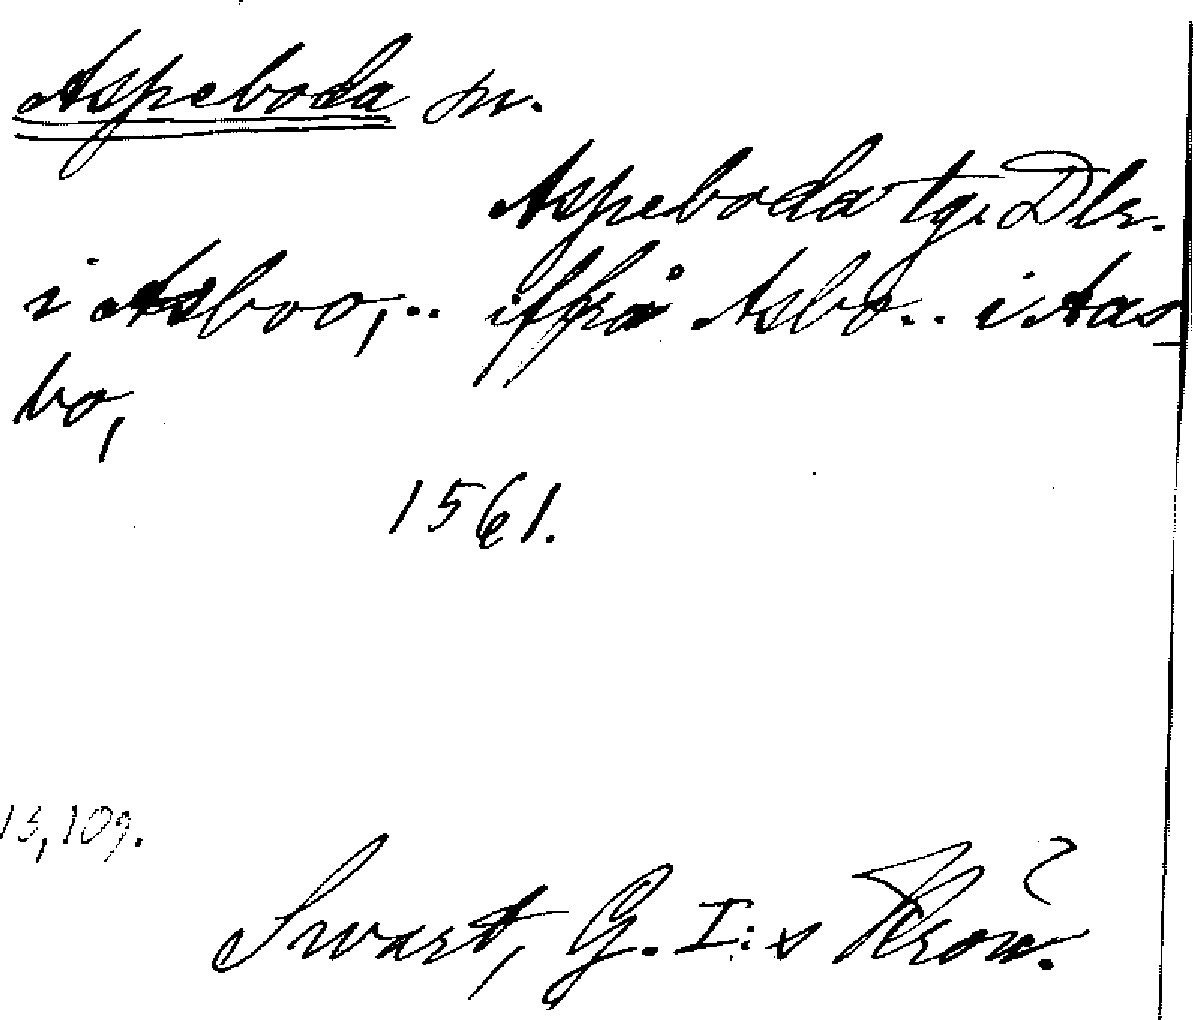 Aspeboda sn.
Aspeboda tg. Dlr.
i Asboo, .. iffrå Asbo .. i Aas
bo,
1561.
13, 109.
Swart, G. I:s Krön.